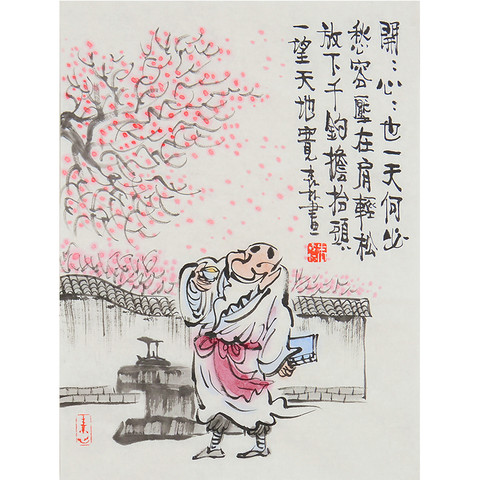 開:心:也一天何必
愁容壓在肩輕松
放下千鈞擔抬頭
一望天地寬